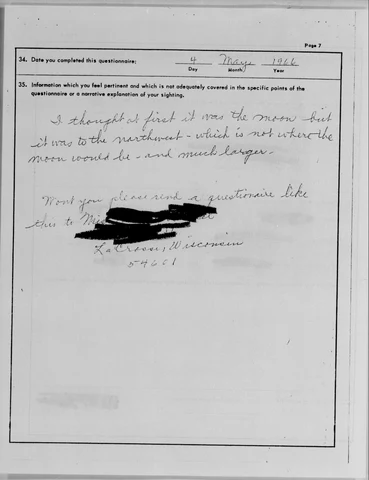 Page 7
34. Date you completed this questionnaire: 4 May 1966
Day Month Year
35. Information which you feel pertinent and which is not adequately covered in the specific points of the
questionnaire or a narrative explanation of your sighting.
I thought at first it was the moon but
it was to the northwest - which is not where the
moon would be - and much larger -
Wont you please send a questionaire like
this to
LaCrosse, Wisconsin
54601